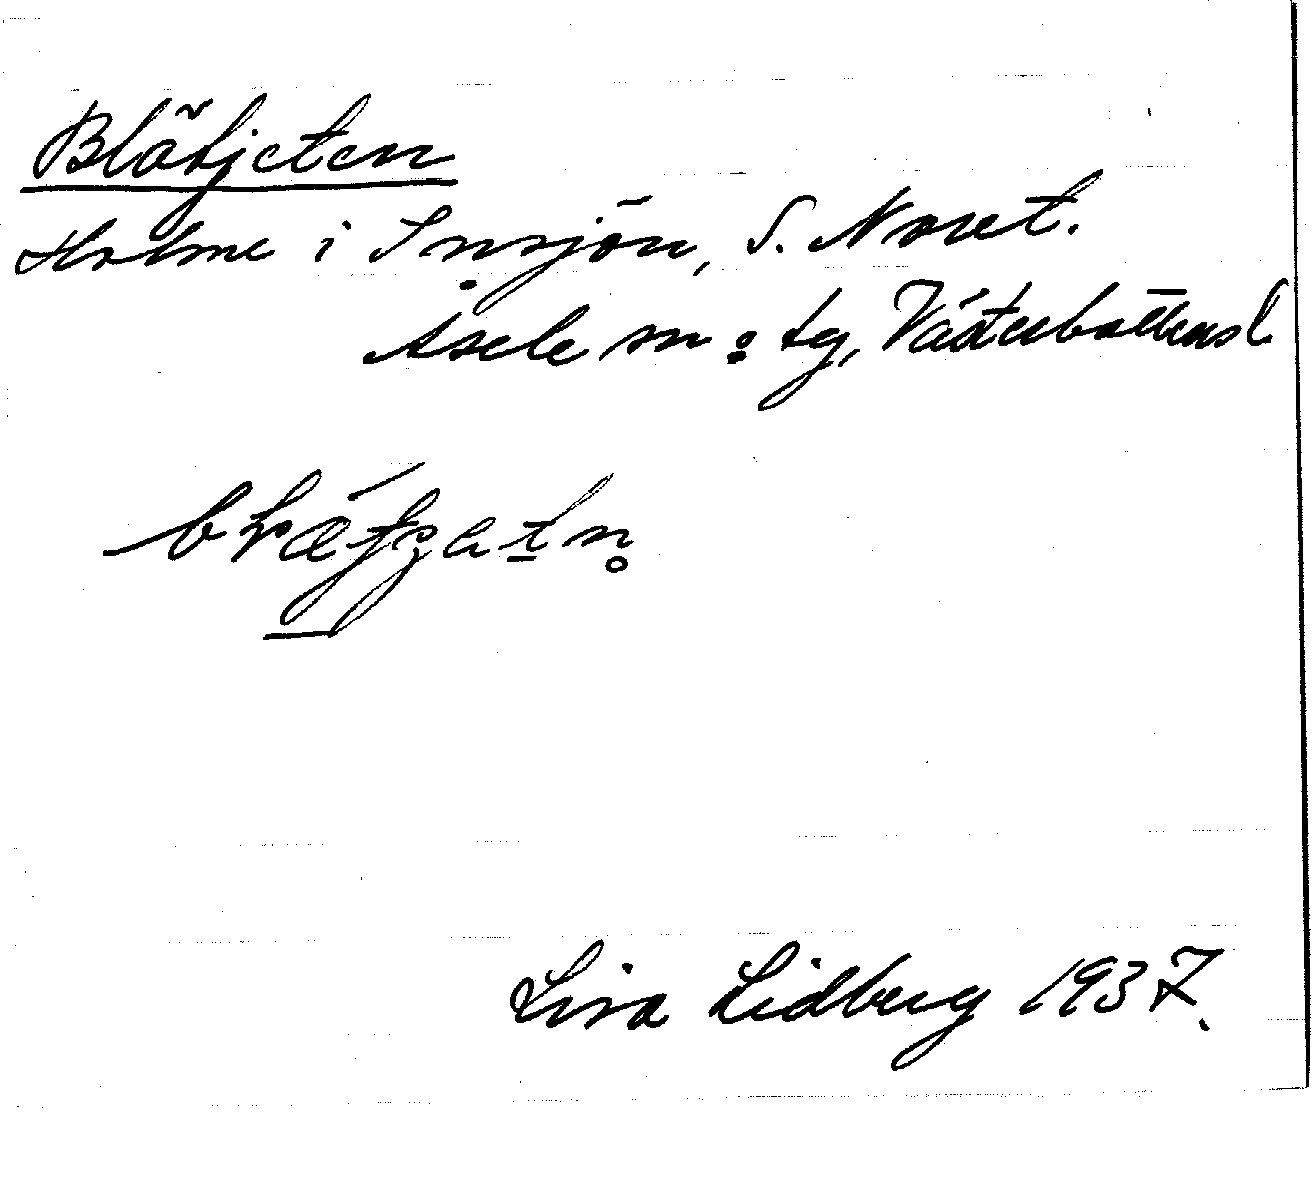 Blåkjeten
Holme i Insjön, S. Noret.
Åsele sn o tg, Västerbottens l.
Lisa Lidberg 1937.